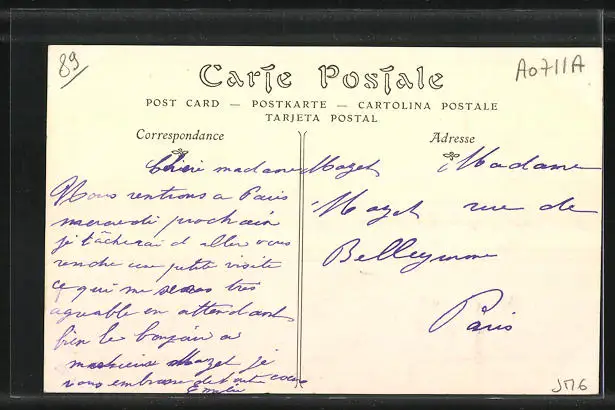 89
A0711A
Carte Postale
POST CARD — POSTKARTE — CARTOLINA POSTALE
TARJETA POSTAL
Correspondance
Adresse
madame Mazet
Nous rentrons a Paris
mercredi prochain
je tâcherai d aller vous
rendre une petite visite
ce qui me seras très
agréable en attendant
bien le bonjour a
monsieur Mazet je
vous embrasse de tout coeur
Emilie
Madame
Mazet rue de
Paris
JM6